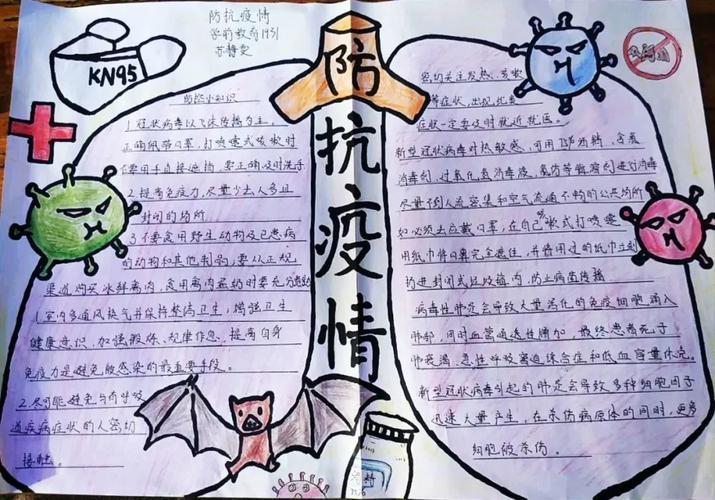 防抗疫情
学前教育1931
KN95
防抗疫情
防控小知识
1.冠状病毒以飞沫传播为主，
正确佩带口罩，打喷嚏或咳嗽时
不要用手直接遮挡，要正确及时洗手
2.提高免疫力，尽量少去人多且
封闭的场所
3.不要食用野生动物及已患病
的动物和其他制品；要从正规
渠道购买冰鲜禽肉，食用禽肉蛋奶时要充分煮熟
1.室内多通风换气并保持整洁卫生，增强卫生
健康意识，加强锻炼、规律作息，提高自身
免疫力是避免被感染的最重要手段。
2.尽可能避免与有呼吸
道疾病症状的人密切
接触。
密切关注发热、咳嗽
等症状，出现此类
症状一定要及时就近就医。
新型冠状病毒对热敏感，可用75%酒精，含氯
消毒剂，过氧化氢消毒液，氯仿等脂溶剂进行消毒
尽量不到人流密集和空气流通不畅的公共场所
如必须去应戴口罩，在自己咳嗽或打喷嚏
用纸巾将口鼻完全遮住，并将用过的纸巾立刻
扔进封闭式垃圾箱内，防止病菌传播
病毒性肺炎会导致大量活化的免疫细胞涌入
肺部，同时血管通透性增加，最终患者死于
肺衰竭、急性呼吸窘迫综合症和低血容量休克。
新型冠状病毒引起的肺炎会导致多种细胞因子
迅速大量产生，在杀伤病原体的同时，更多
细胞被杀伤。